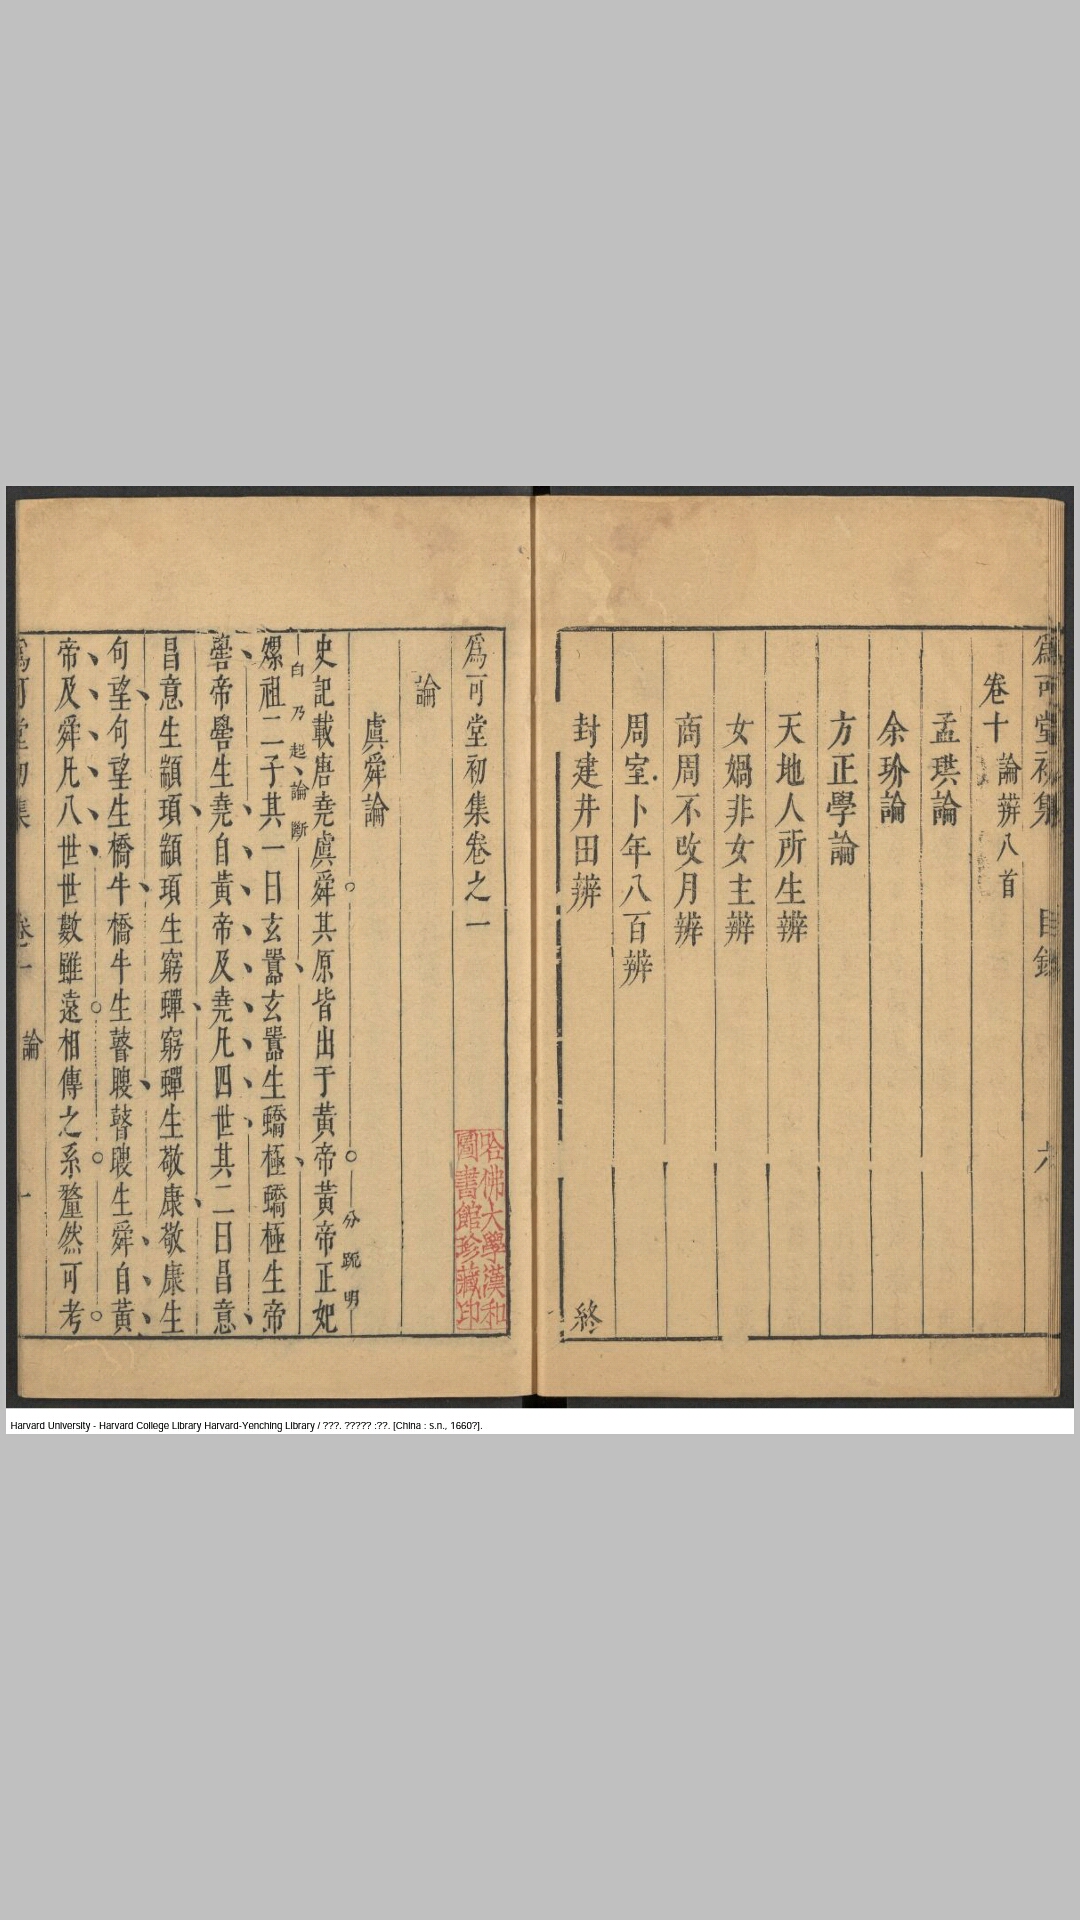 爲可堂初集 目錄 六
卷十 論辨八首
孟珙論
余玠論
方正學論
天地人所生辨
女媧非女主辨
商周不改月辨
周室卜年八百辨
封建井田辨
終
爲可堂初集卷之一
論
虞舜論
史記載唐堯虞舜其原皆出于黃帝黃帝正妃
嫘祖二子其一曰玄囂玄囂生蟜極蟜極生帝
嚳帝嚳生堯自黃帝及堯凡四世其二曰昌意
昌意生顓頊顓頊生窮蟬窮蟬生敬康敬康生
句望句望生橋牛橋牛生瞽瞍瞽瞍生舜自黃
帝及舜凡八世世數雖遠相傳之系釐然可考
分
明
起論斷
爲可堂初集 卷一 論 一
哈佛大學漢和
圖書館珍藏印
Harvard University - Harvard College Library Harvard-Yenching Library / ???. ????? :??. [China : s.n., 1660?].